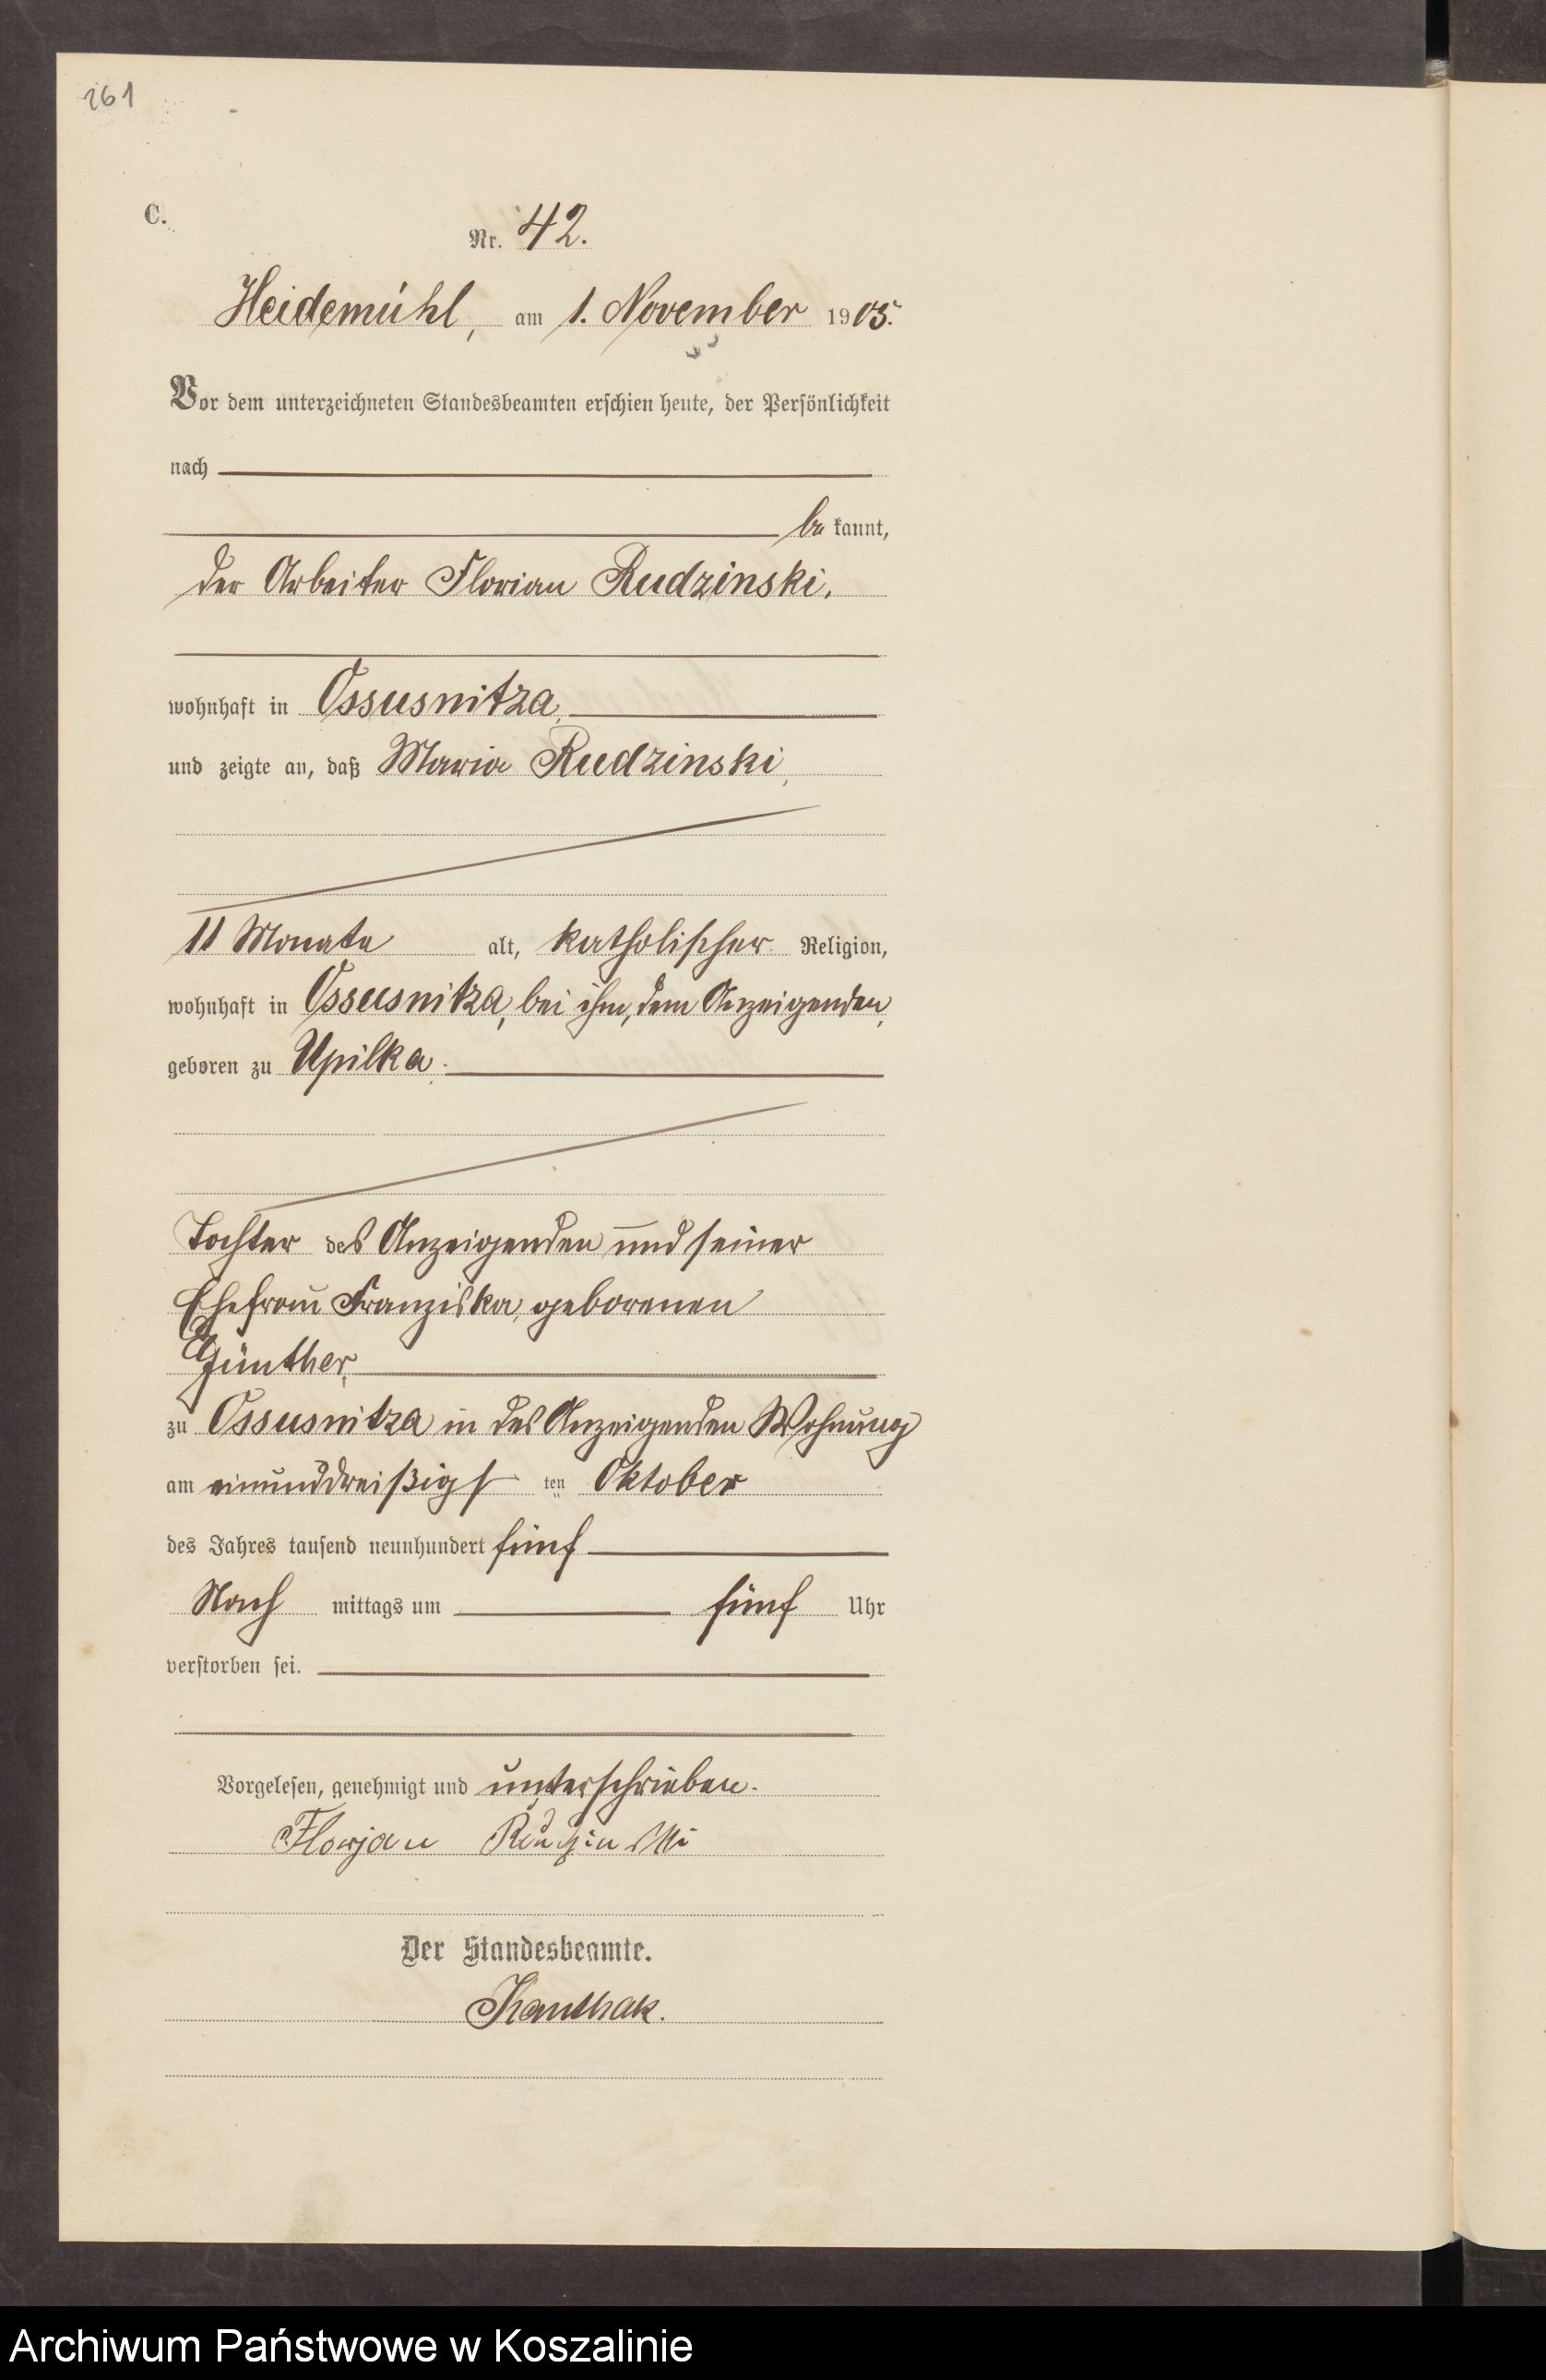 261
C.
Nr. 42.
Heidemühl, am 1. November 1905.
Vor dem unterzeichneten Standesbeamten erschien heute, der Persönlichkeit
nach
be kannt,
der Arbeiter Florian Rudzinski,
wohnhaft in Ossusnitza,
und zeigte an, daß Maria Rudzinski,
11 Monate alt, katholischer Religion,
wohnhaft in Ossusnitza, bei ihm, dem Anzeigenden,
geboren zu Upilka,
Tochter des Anzeigenden und seiner
Ehefrau Franziska, geborenen
Günther,
zu Ossusnitza in des Anzeigenden Wohnung
am einunddreißigst ten Oktober
des Jahres tausend neunhundert fünf
Nach mittags um fünf Uhr
verstorben sei.
Vorgelesen, genehmigt und unterschrieben.
Florjan Rudzinski
Der Standesbeamte.
Kanthak.
Archiwum Państwowe w Koszalinie